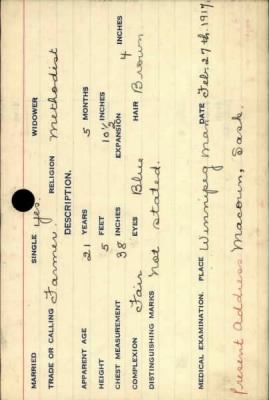 MARRIED SINGLE yes. WIDOWER
TRADE OR CALLING Farmer RELIGION Methodist
DESCRIPTION.
APPARENT AGE 21 YEARS 5 MONTHS
HEIGHT 5 FEET 10½ INCHES
CHEST MEASUREMENT 38 INCHES EXPANSION 4 INCHES
COMPLEXION Fair EYES Blue HAIR Brown
DISTINGUISHING MARKS not stated.
MEDICAL EXAMINATION. PLACE Winnipeg Man DATE Feb. 27th. 1917.
Present Address Macoun, Sask.